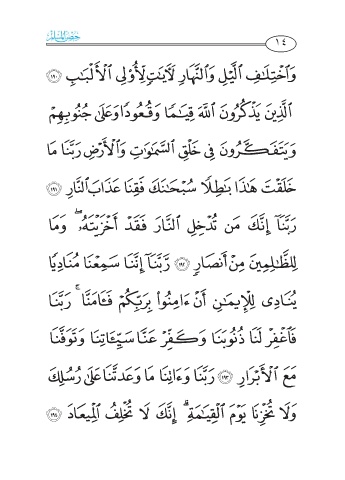 حصن المسلم
١٤
وَٱخۡتِلَٰفِ ٱلَّيۡلِ وَٱلنَّهَارِ لَأٓيَٰتٖ لِّأُوْلِي ٱلۡأَلۡبَٰبِ ١٩٠
ٱلَّذِينَ يَذۡكُرُونَ ٱللَّهَ قِيَٰمٗا وَقُعُودٗا وَعَلَىٰ جُنُوبِهِمۡ
وَيَتَفَكَّرُونَ فِي خَلۡقِ ٱلسَّمَٰوَٰتِ وَٱلۡأَرۡضِ رَبَّنَا مَا
خَلَقۡتَ هَٰذَا بَٰطِلٗا سُبۡحَٰنَكَ فَقِنَا عَذَابَ ٱلنَّارِ ١٩١
رَبَّنَآ إِنَّكَ مَن تُدۡخِلِ ٱلنَّارَ فَقَدۡ أَخۡزَيۡتَهُۥۖ وَمَا
لِلظَّٰلِمِينَ مِنۡ أَنصَارٖ ١٩٢ رَّبَّنَآ إِنَّنَا سَمِعۡنَا مُنَادِيٗا
يُنَادِي لِلۡإِيمَٰنِ أَنۡ ءَامِنُواْ بِرَبِّكُمۡ فَـَٔامَنَّاۚ رَبَّنَا
فَٱغۡفِرۡ لَنَا ذُنُوبَنَا وَكَفِّرۡ عَنَّا سَيِّـَٔاتِنَا وَتَوَفَّنَا
مَعَ ٱلۡأَبۡرَارِ ١٩٣ رَبَّنَا وَءَاتِنَا مَا وَعَدتَّنَا عَلَىٰ رُسُلِكَ
وَلَا تُخۡزِنَا يَوۡمَ ٱلۡقِيَٰمَةِۖ إِنَّكَ لَا تُخۡلِفُ ٱلۡمِيعَادَ ١٩٤